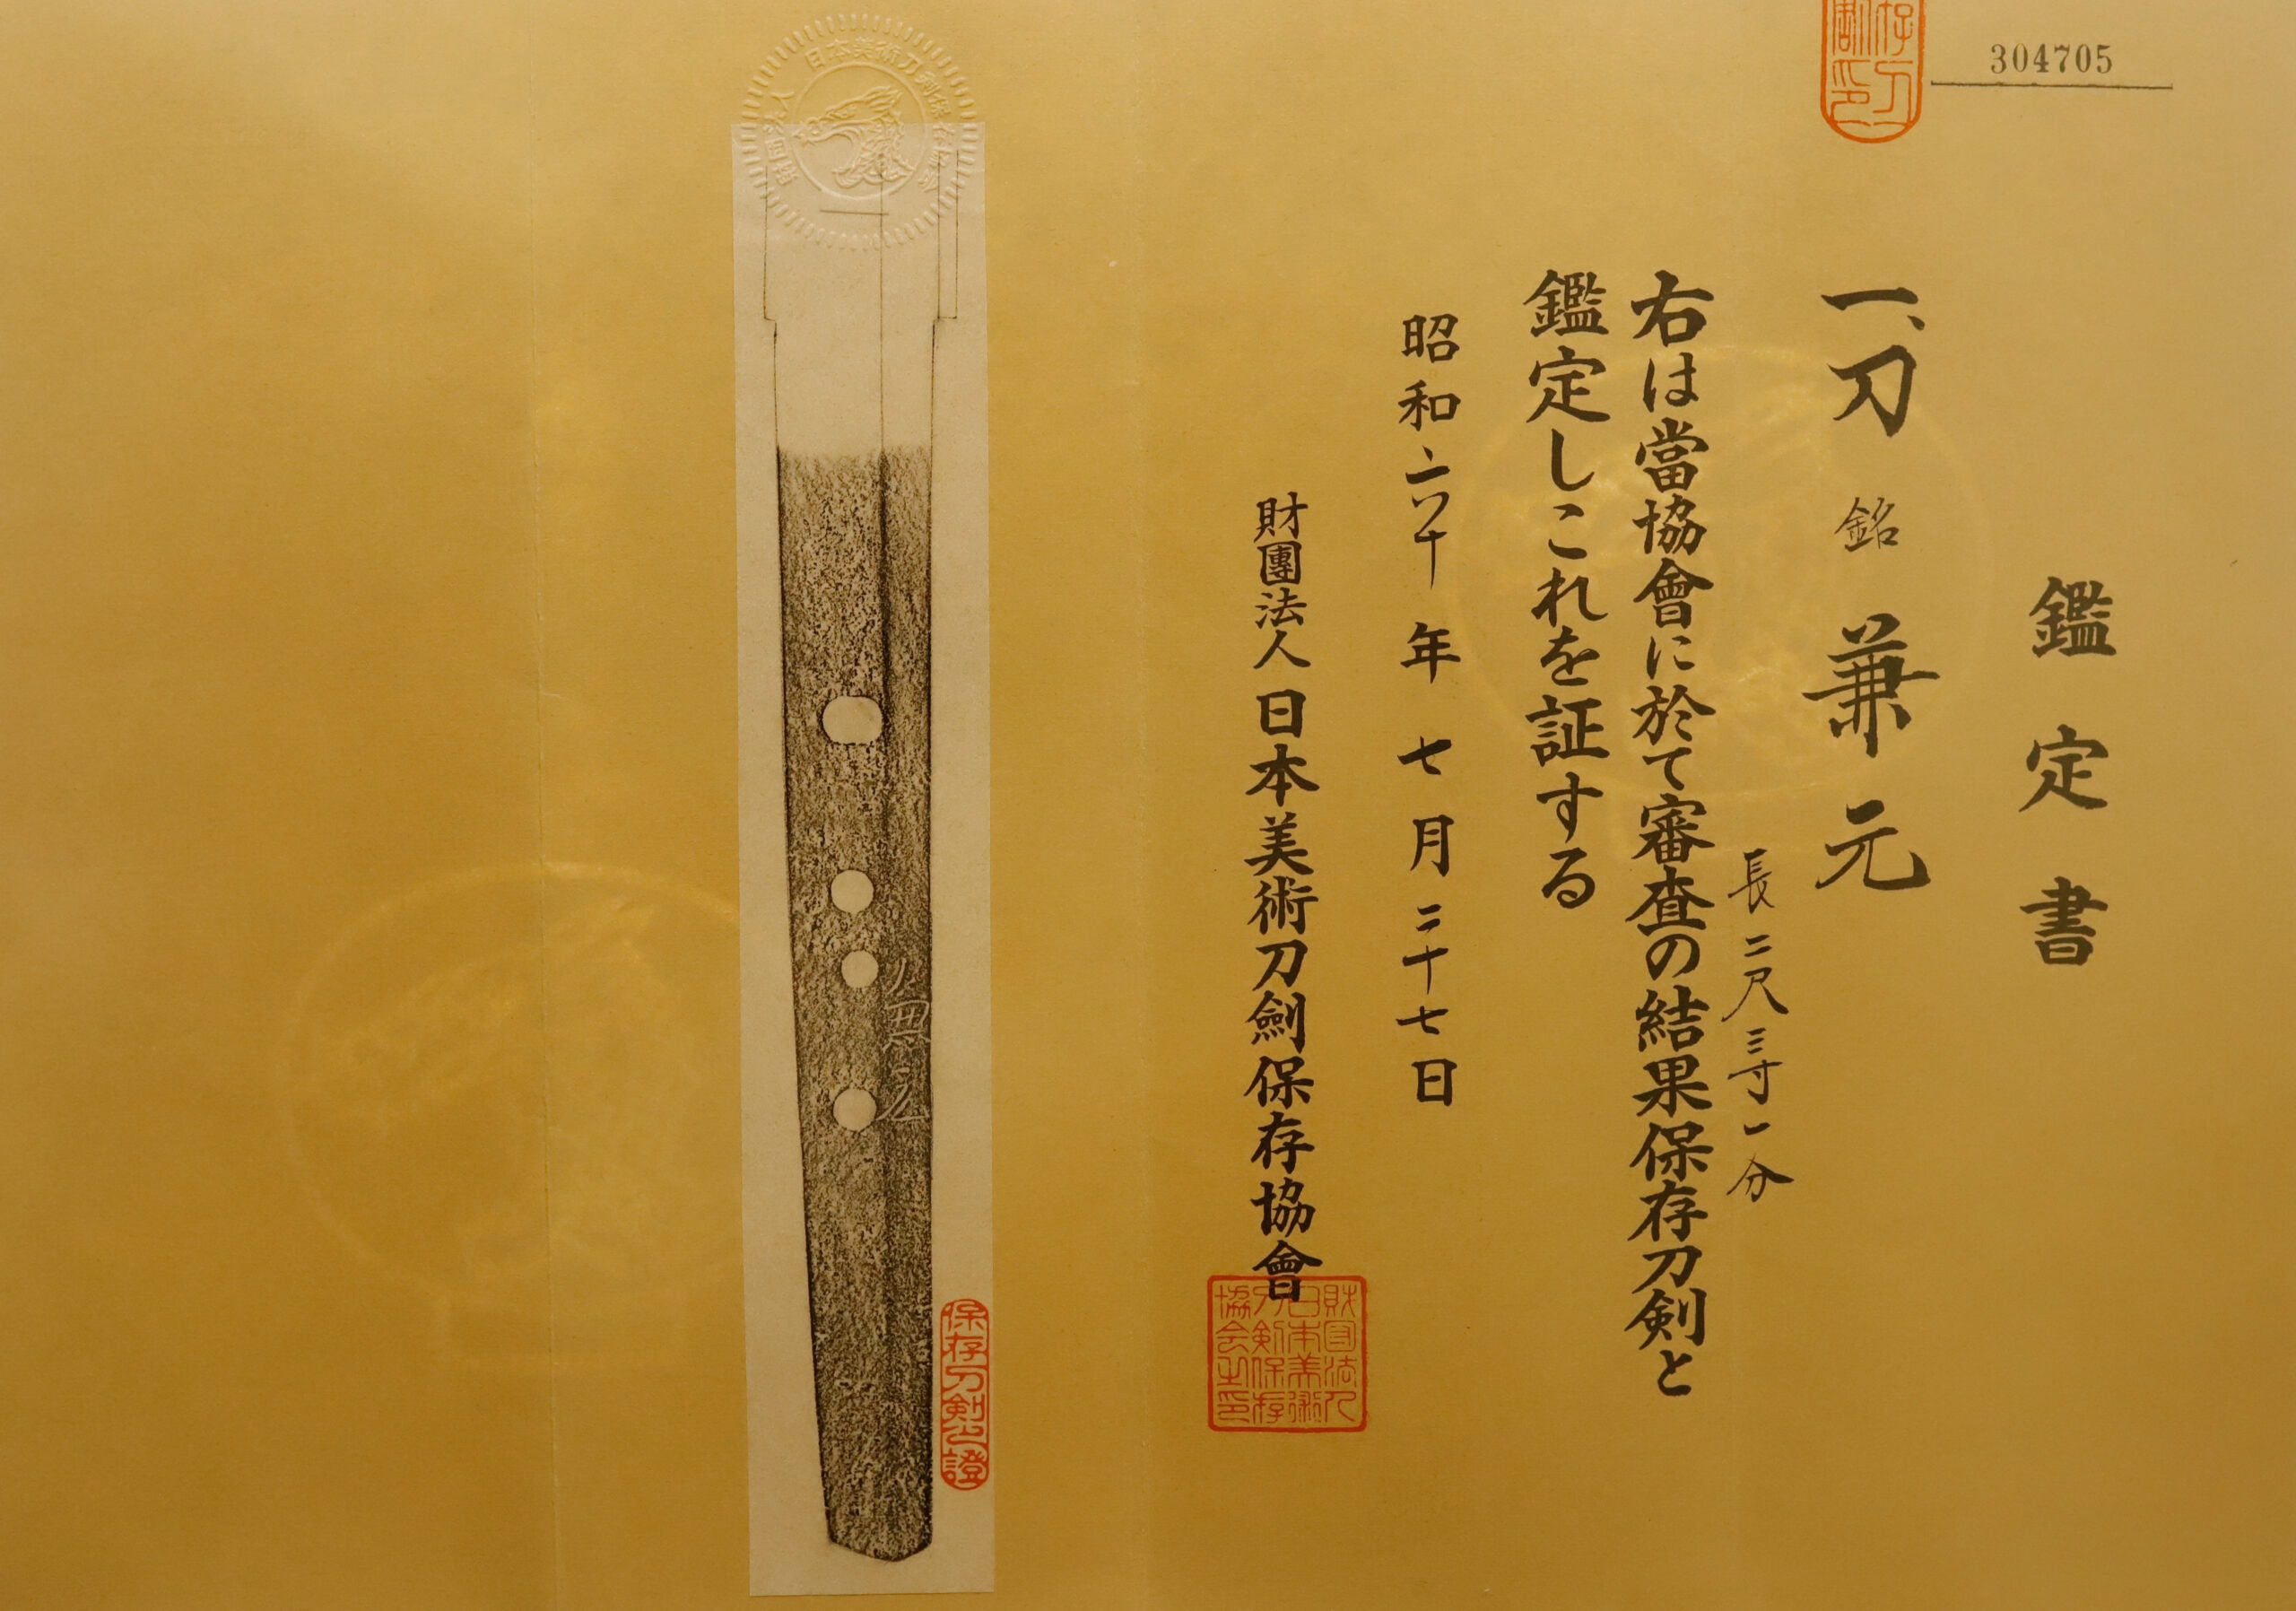 304705
鑑定書
一、刀 銘 兼元
長二尺三寸一分
右は當協會に於て審査の結果保存刀剣と
鑑定しこれを証する
昭和六十年七月二十七日
財團法人日本美術刀劍保存協會
財団法人
日本美術
刀剣保存
協会之印
保存刀剣之證
兼元